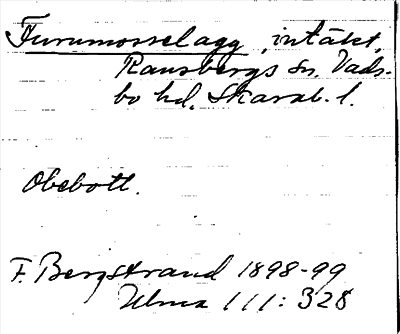 Furumosselagg, intäkt,
Ransbergs sn. Vads-
bo hd. Skarab. l.
Obebott.
F. Bergstrand 1898-99
Ulma 111: 328